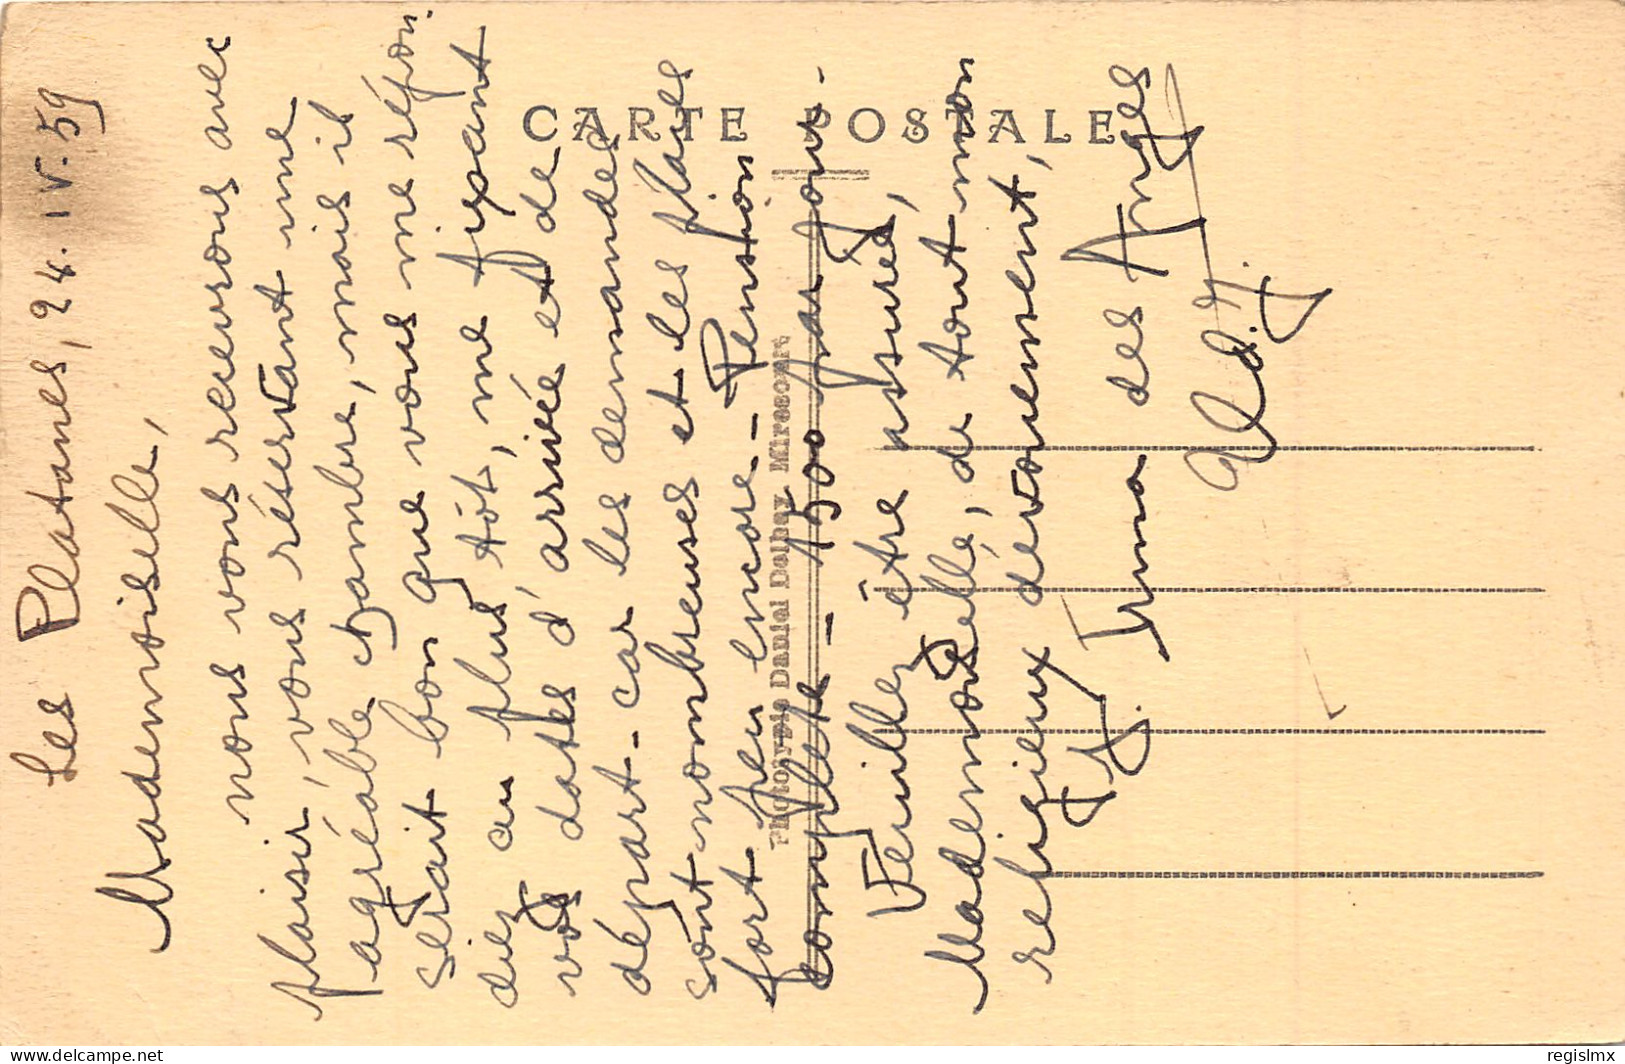 Les Platanes, 24. IV. 59
Mademoiselle,
nous vous recevrons avec
plaisir, vous réservant une
agréable chambre, mais il
serait bon que vous me répon-
diez au plus tôt, me fixant
vos dates d'arrivée et de
départ - car les demandes
sont nombreuses et les places
fort peu encore - Pension
complète - 1500 par jour -
Veuillez être assurée,
Mademoiselle, de tout mon
religieux dévouement,
Sr. Irma des Anges
CARTE POSTALE
Phototypie Daniel Delbey, Mirecourt
regislmx
delcampe.net